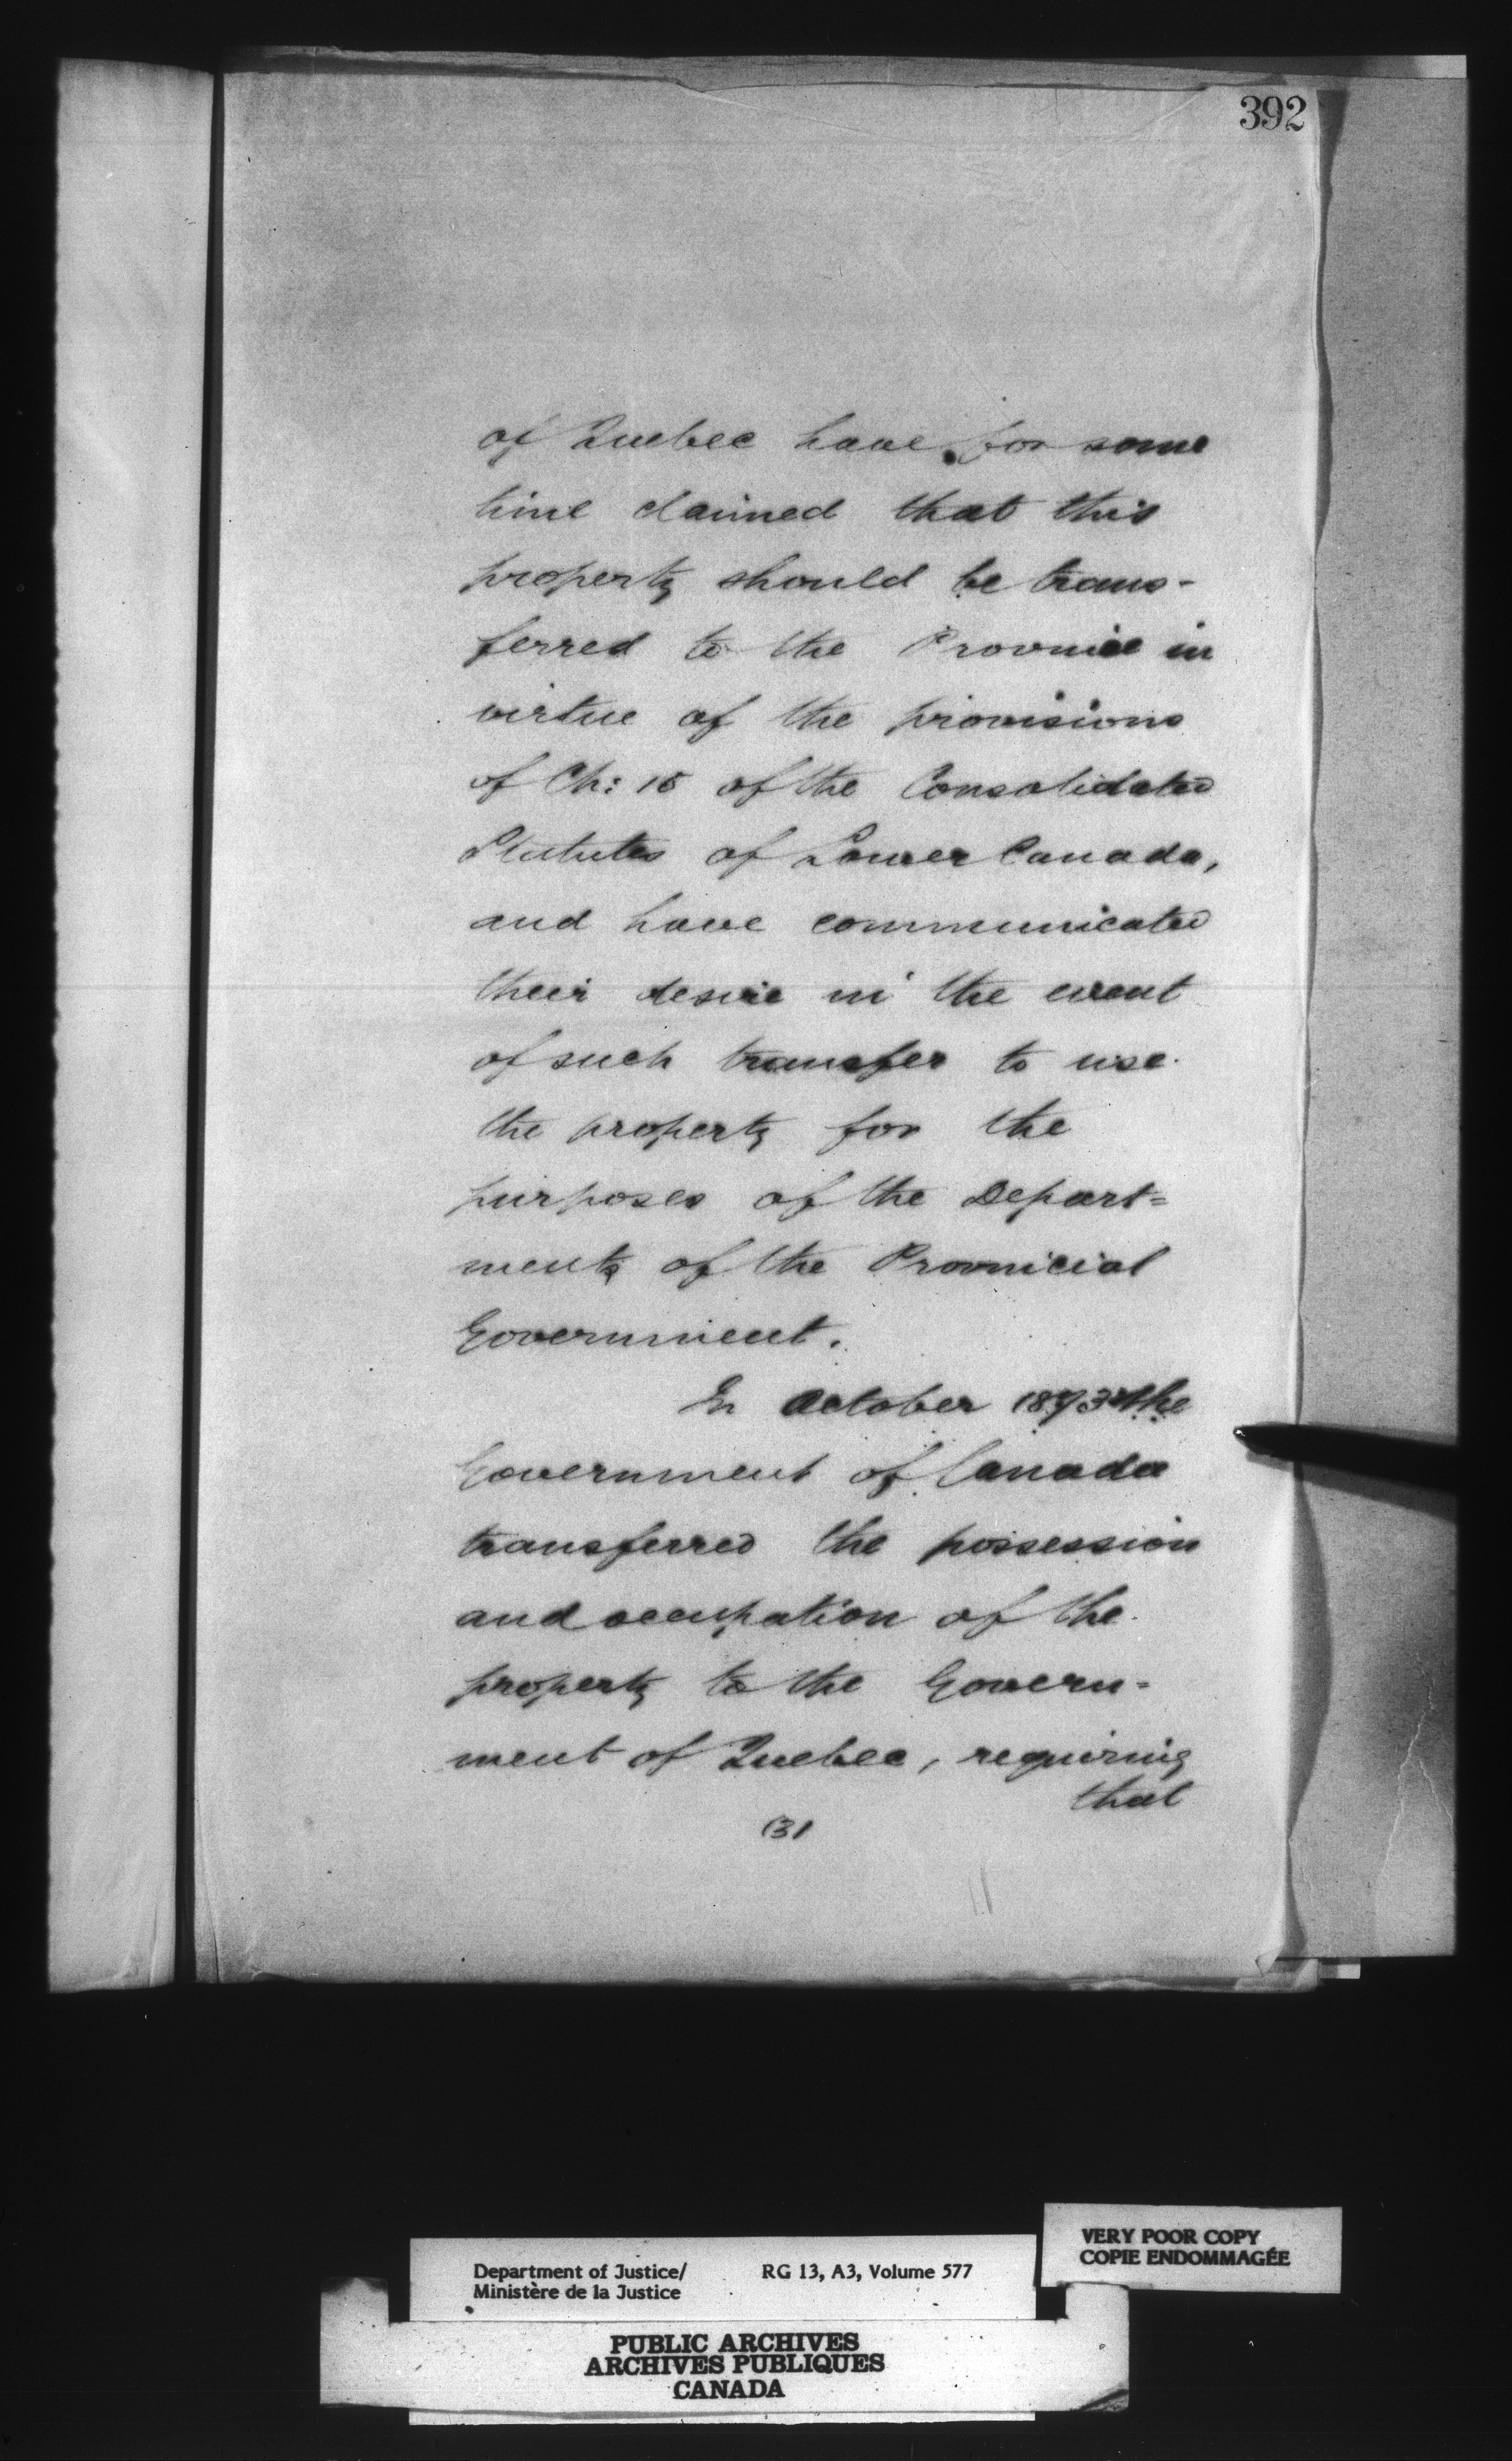 392
of Quebec have for some
time claimed that this
property should be trans-
ferred to the Province in
virtue of the provisions
of Ch: 15 of the Consolidated
Statutes of Lower Canada,
and have communicated
their desire in the event
of such transfer to use
the property for the
purposes of the Depart=
ments of the Provincial
Government.
In October 1873 the
Government of Canada
transferred the possession
and occupation of the
property to the Govern=
ment of Quebec, requiring
that
(3)
VERY POOR COPY
COPIE ENDOMMAGÉE
Department of Justice/ RG 13, A3, Volume 577
Ministère de la Justice
PUBLIC ARCHIVES
ARCHIVES PUBLIQUES
CANADA